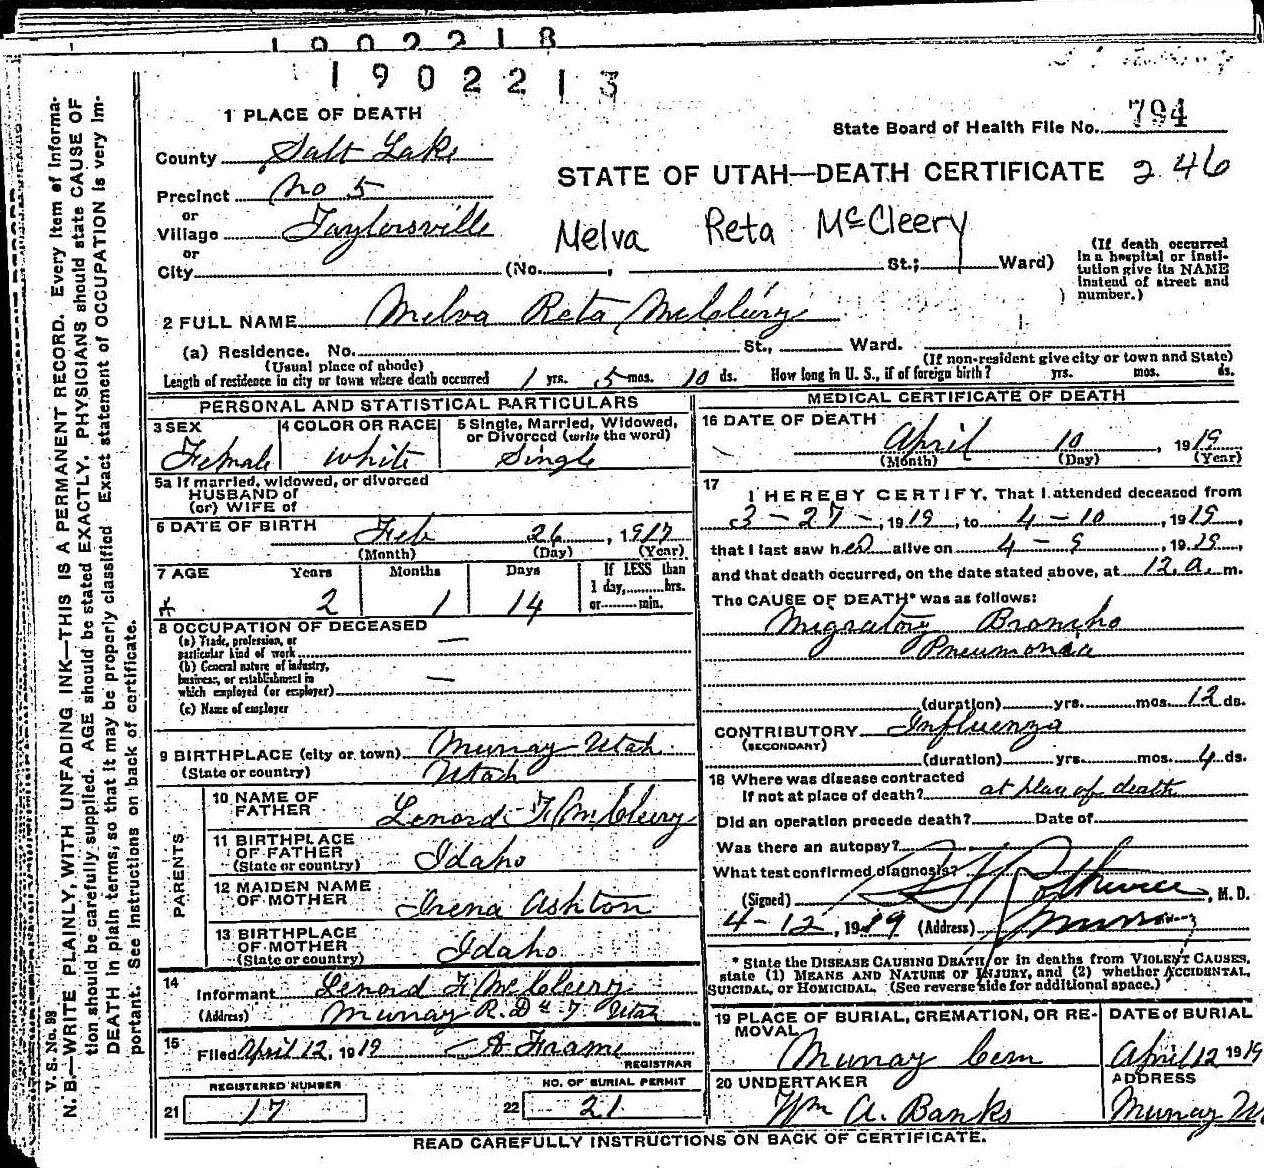 1902218
1902213
1 PLACE OF DEATH
State Board of Health File No. 794
County Salt Lake
STATE OF UTAH—DEATH CERTIFICATE 246
Precinct No 5
or
Village Taylorsville
Melva Reta McCleery
or
City (No. , St.; Ward)
(If death occurred
in a hospital or insti-
tution give its NAME
instead of street and
number.)
2 FULL NAME Melva Reta McCleery
(a) Residence. No. St., Ward.
(Usual place of abode)
(If non-resident give city or town and State)
Length of residence in city or town where death occurred 1 yrs. 5 mos. 10 ds. How long in U. S., if of foreign birth? yrs. mos. ds.
PERSONAL AND STATISTICAL PARTICULARS
3 SEX
Female
4 COLOR OR RACE
white
5 Single, Married, Widowed,
or Divorced (write the word)
Single
5a If married, widowed, or divorced
HUSBAND of
(or) WIFE of
6 DATE OF BIRTH Feb 26, 1917
(Month) (Day) (Year)
7 AGE Years Months Days If LESS than
1 day, hrs.
or min.
2 1 14
8 OCCUPATION OF DECEASED
(a) Trade, profession, or
particular kind of work —
(b) General nature of industry,
business, or establishment in
which employed (or employer) —
(c) Name of employer
9 BIRTHPLACE (city or town) Murray Utah
(State or country) Utah
PARENTS
10 NAME OF
FATHER Lenord F McCleery
11 BIRTHPLACE
OF FATHER
(State or country) Idaho
12 MAIDEN NAME
OF MOTHER Irena Ashton
13 BIRTHPLACE
OF MOTHER
(State or country) Idaho
14
Informant Lenord F McCleery
(Address) Murray R. D # 7 Utah
15
Filed April 12, 1919 A Frame
REGISTRAR
REGISTERED NUMBER
21 17
NO. OF BURIAL PERMIT
22 21
MEDICAL CERTIFICATE OF DEATH
16 DATE OF DEATH
April 10, 1919
(Month) (Day) (Year)
17
I HEREBY CERTIFY, That I attended deceased from
3-27-, 1919, to 4-10, 1919,
that I last saw her alive on 4-9, 1919,
and that death occurred, on the date stated above, at 12 a. m.
The CAUSE OF DEATH* was as follows:
Migratory Broncho
Pneumonia
(duration) yrs. mos. 12 ds.
CONTRIBUTORY Influenza
(SECONDARY)
(duration) yrs. mos. 4 ds.
18 Where was disease contracted
If not at place of death? at place of death
Did an operation precede death? Date of
Was there an autopsy?
What test confirmed diagnosis?
(Signed) , M. D.
4-12, 1919 (Address) Murray
* State the DISEASE CAUSING DEATH, or in deaths from VIOLENT CAUSES,
state (1) MEANS AND NATURE OF INJURY, and (2) whether ACCIDENTAL,
SUICIDAL, or HOMICIDAL. (See reverse side for additional space.)
19 PLACE OF BURIAL, CREMATION, OR RE-
MOVAL
Murray Cem
DATE of BURIAL
April 12 1919
20 UNDERTAKER
Wm A. Banks
ADDRESS
Murray
READ CAREFULLY INSTRUCTIONS ON BACK OF CERTIFICATE.
V. S. No. 98
N. B.—WRITE PLAINLY, WITH UNFADING INK—THIS IS A PERMANENT RECORD. Every item of informa-
tion should be carefully supplied. AGE should be stated EXACTLY. PHYSICIANS should state CAUSE OF
DEATH in plain terms, so that it may be properly classified. Exact statement of OCCUPATION is very im-
portant. See instructions on back of certificate.